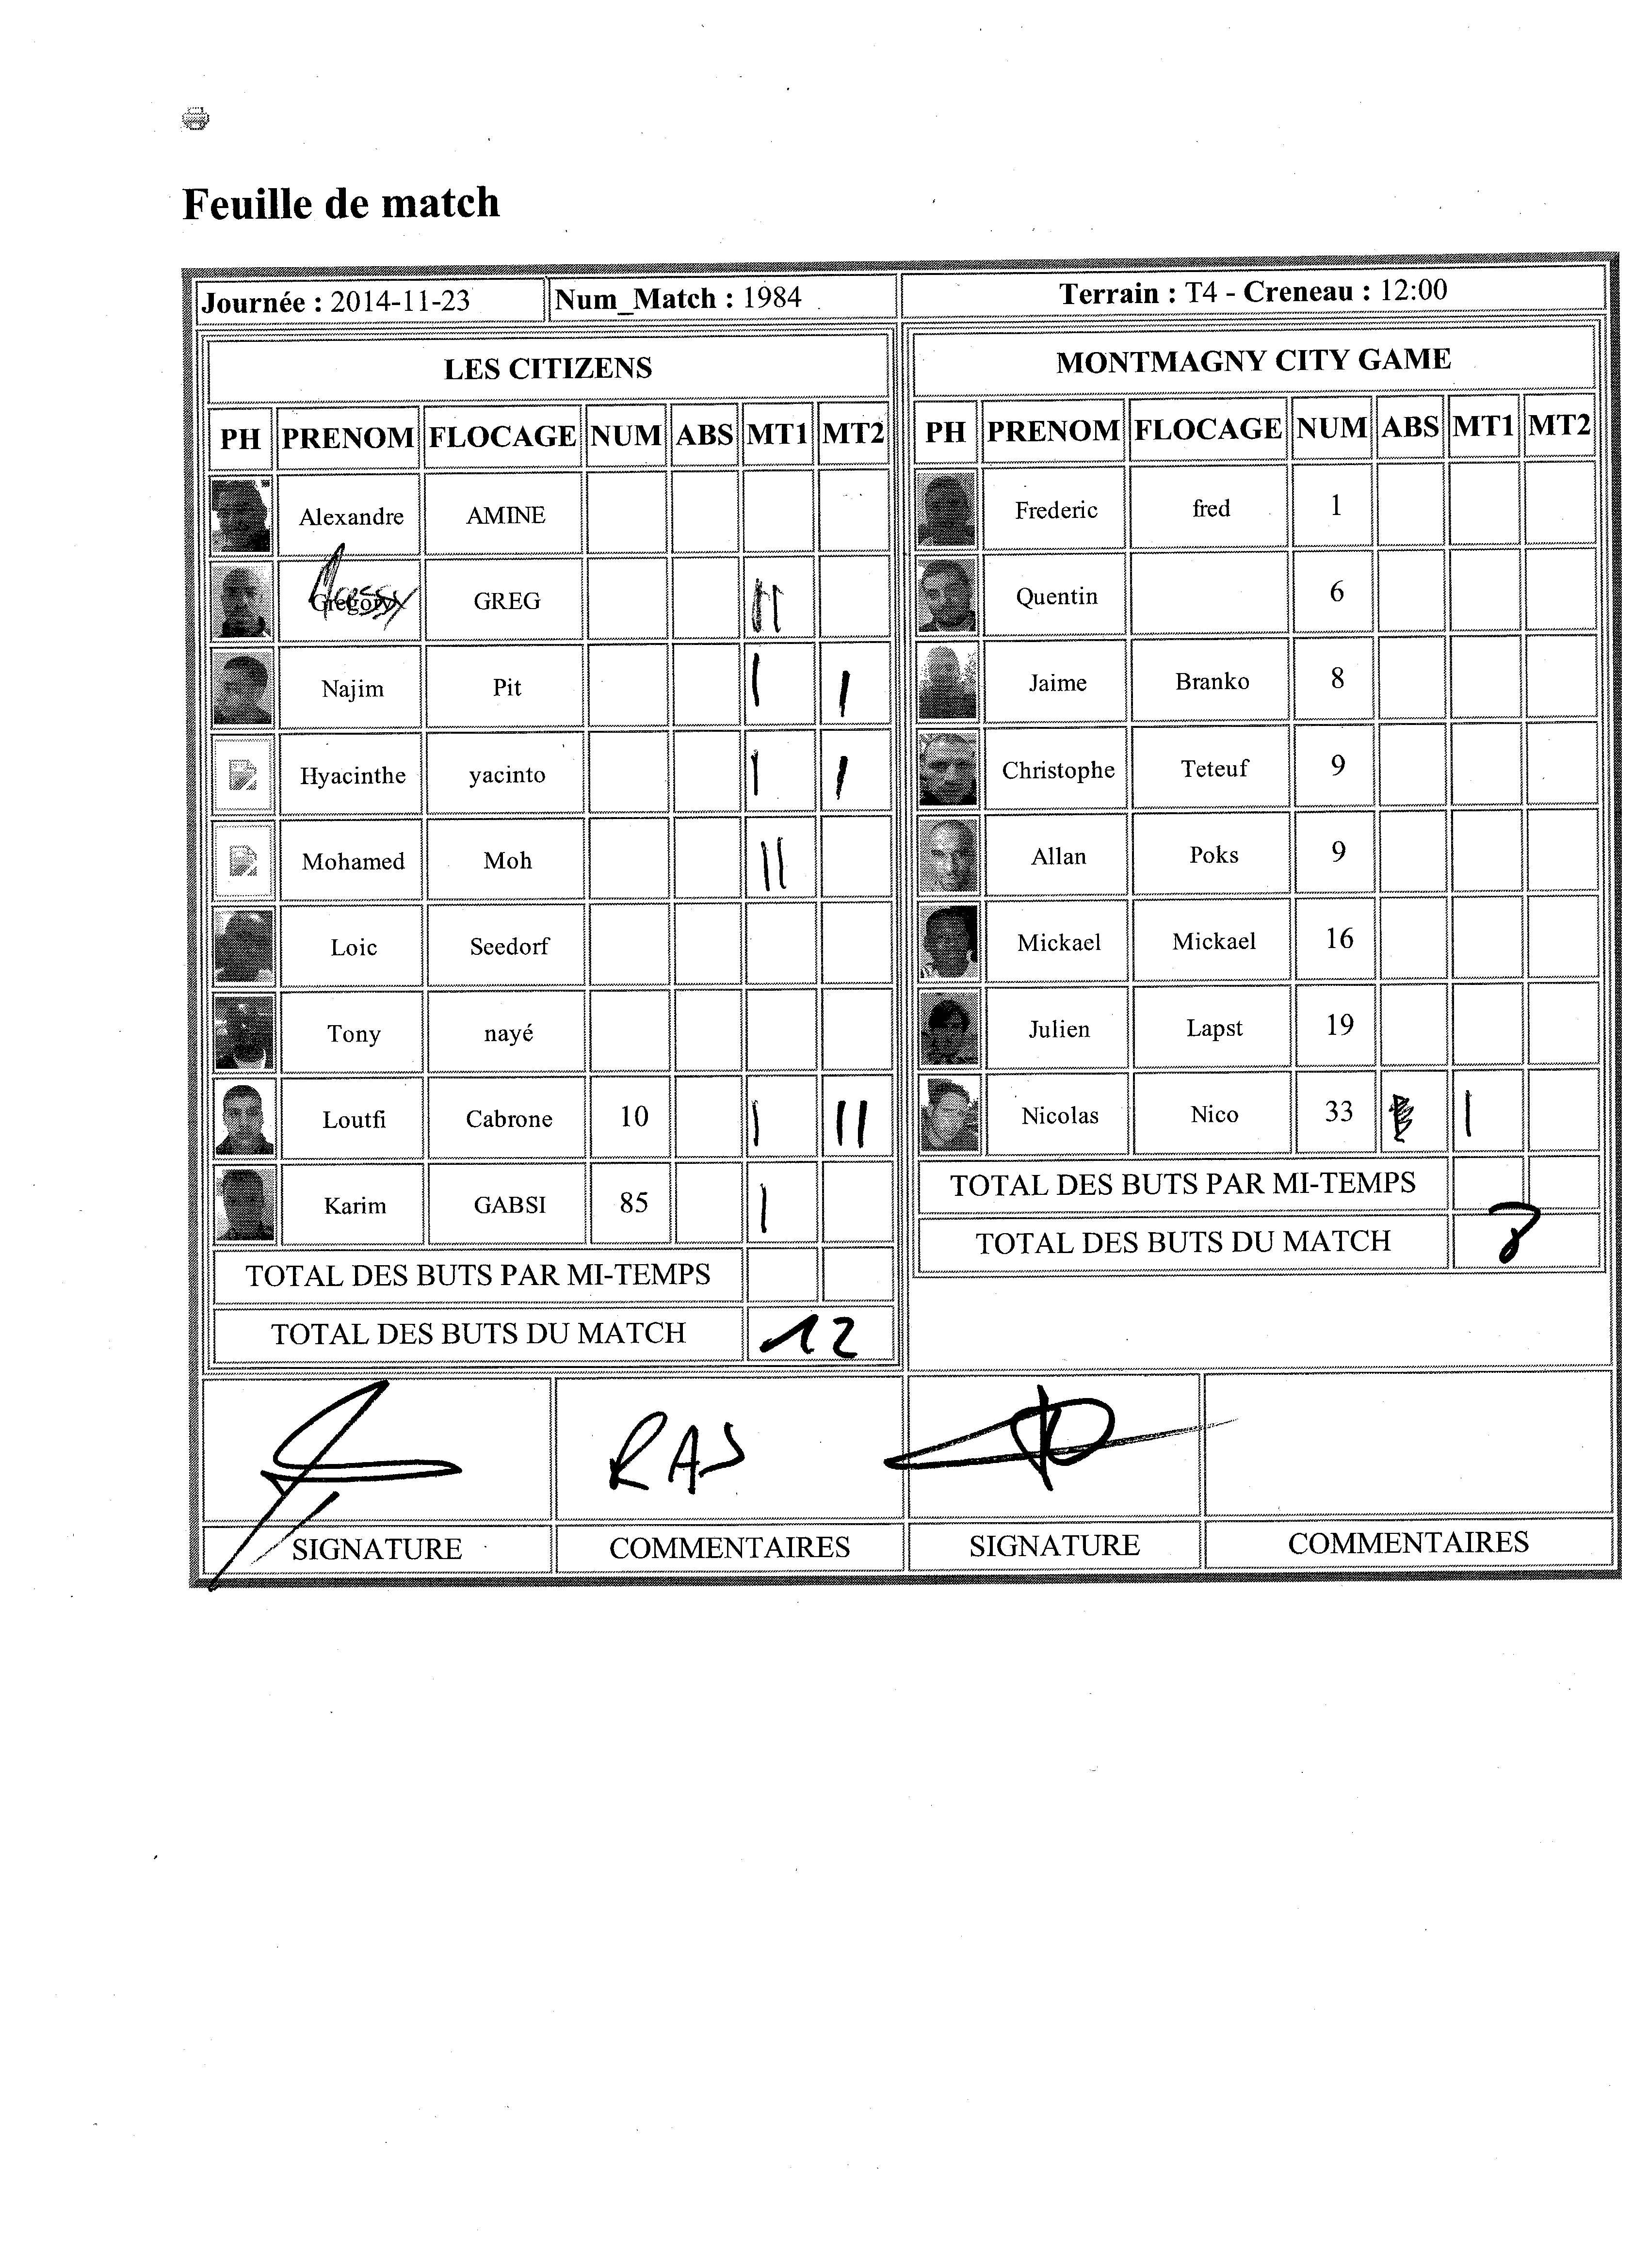 Feuille de match
Journée : 2014-11-23 Num_Match : 1984 Terrain : T4 - Creneau : 12:00
LES CITIZENS
PH PRENOM FLOCAGE NUM ABS MT1 MT2
Alexandre AMINE
Gregory GREG II
Najim Pit I I
Hyacinthe yacinto I I
Mohamed Moh II
Loic Seedorf
Tony nayé
Loutfi Cabrone 10 I II
Karim GABSI 85 I
TOTAL DES BUTS PAR MI-TEMPS
TOTAL DES BUTS DU MATCH 12
MONTMAGNY CITY GAME
PH PRENOM FLOCAGE NUM ABS MT1 MT2
Frederic fred 1
Quentin 6
Jaime Branko 8
Christophe Teteuf 9
Allan Poks 9
Mickael Mickael 16
Julien Lapst 19
Nicolas Nico 33 I
TOTAL DES BUTS PAR MI-TEMPS
TOTAL DES BUTS DU MATCH
RAS
SIGNATURE COMMENTAIRES SIGNATURE COMMENTAIRES